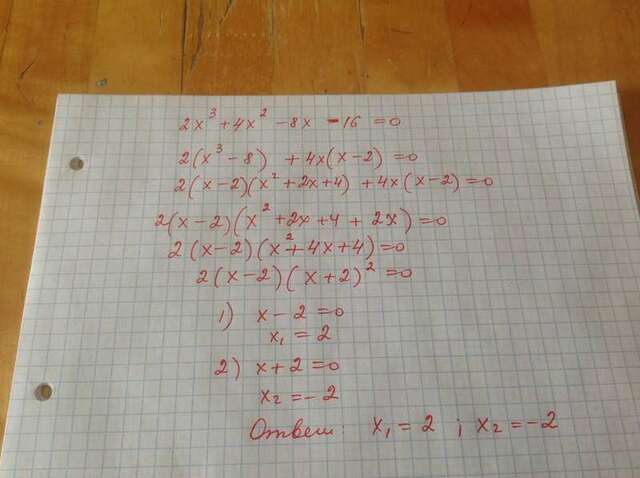 2x³ + 4x² - 8x - 16 = 0
2(x³ - 8) + 4x(x - 2) = 0
2(x - 2)(x² + 2x + 4) + 4x(x - 2) = 0
2(x - 2)(x² + 2x + 4 + 2x) = 0
2(x - 2)(x² + 4x + 4) = 0
2(x - 2)(x + 2)² = 0
1) x - 2 = 0
x₁ = 2
2) x + 2 = 0
x₂ = - 2
Ответ: x₁ = 2 ; x₂ = -2